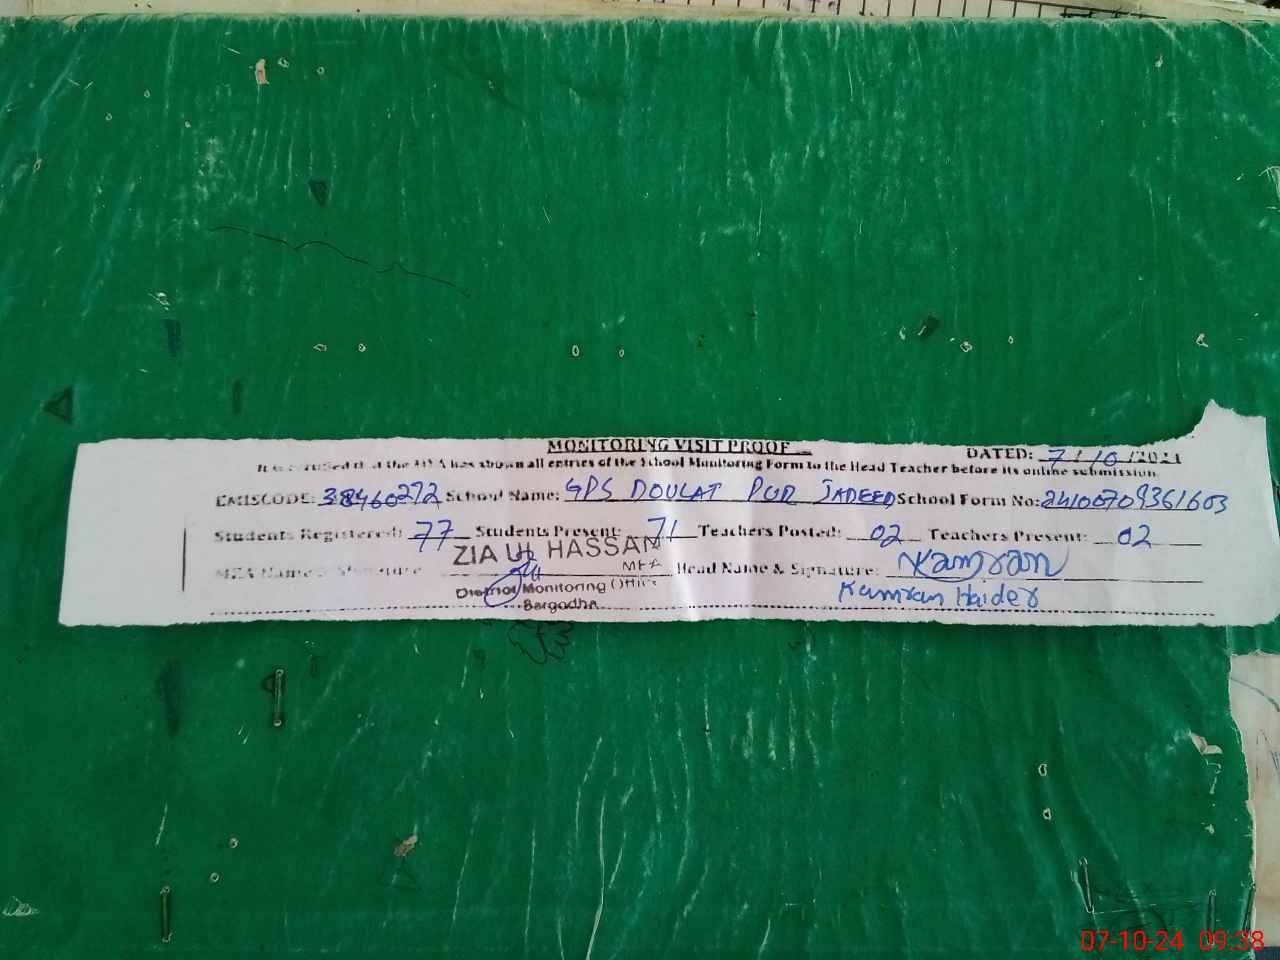 MONITORING VISIT PROOF
DATED: 7/10/2021
It is certified that the MEA has shown all entries of the School Monitoring Form to the Head Teacher before its online submission.
EMISCODE: 38460272 School Name: GPS DOULAT PUR JADEED School Form No: 24100709361603
Students Registered: 77 Students Present: 71 Teachers Posted: 02 Teachers Present: 02
ZIA UL HASSAN
MEA Name & Signature MEA Head Name & Signature: Kamran
District Monitoring Office Kamran Haider
Sargodha
07-10-24 09:38